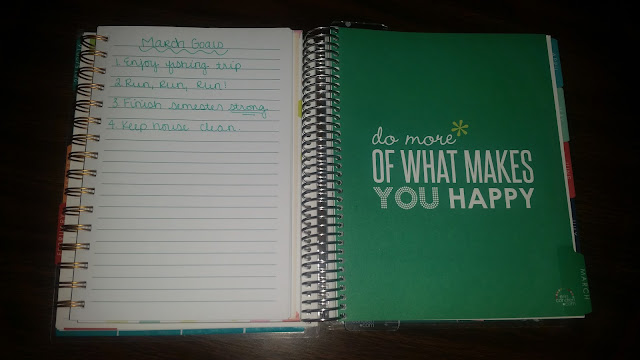 March Goals
1. Enjoy fishing trip
2. Run, Run, Run!
3. Finish semester strong
4. Keep house clean.
do more*
OF WHAT MAKES
YOU HAPPY
MARCH